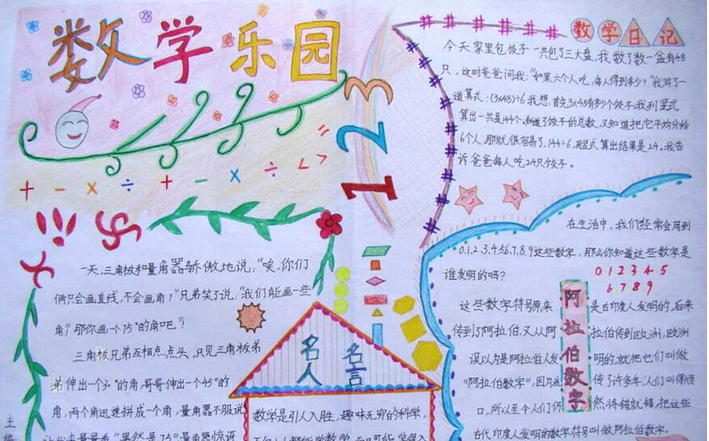 数学乐园
+ - × ÷ + - × ÷ < >
1 2 3
数学日记
今天家里包饺子一共包了三大盘,我数了数一盘有48
只,这时爸爸问我:"如果六个人吃,每人得到多少?"我写了一
道算式:(3×48)÷6我想首先3×48有多少个饺子,我列竖式
算出一共是144个,知道了饺子的总数,又知道把它平均分给
6个人,那就很容易了,144÷6,竖式算出结果是24。我告
诉爸爸每人吃24只饺子。
一天,三角板和量角器骄傲地说:"唉,你们
俩只会画直线,不会画角!"兄弟笑了说:"我们能画一些
角?那你画一个75°的角吧?"
三角板兄弟互相点点头,只见三角板弟
弟伸出一个30°的角,哥哥伸出一个45°的
角,两个角迅速拼成一个角,量角器不服说
名人名言
数学是引人入胜,趣味无穷的科学,
在生活中,我们经常会用到
0.1.2.3.4.5.6.7.8.9这些数字,那么你知道这些数字是
谁发明的吗?
0 1 2 3 4 5
6 7 8 9
阿拉伯数字
这些数字符号原来是古印度人发明的,后来
传到了阿拉伯,又从阿拉伯传到欧洲,欧洲
误以为是阿拉伯人发明的,就把它们叫做
"阿拉伯数字",因为流传了许多年,人们叫得顺
口,所以至今人们仍然将错就错,把这些
古代印度人发明的数字符号叫做阿拉伯数字。
主